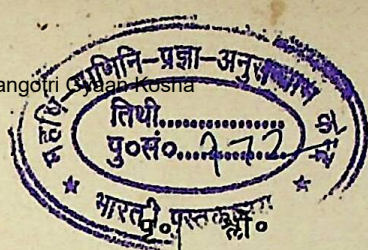 angotri Gyaan Kosha
महर्षि-पाणिनि-प्रज्ञा-अनुसन्धान केन्द्र
तिथी................
पु०सं०......
भारती पुस्तकालय
पृ० श्लो०